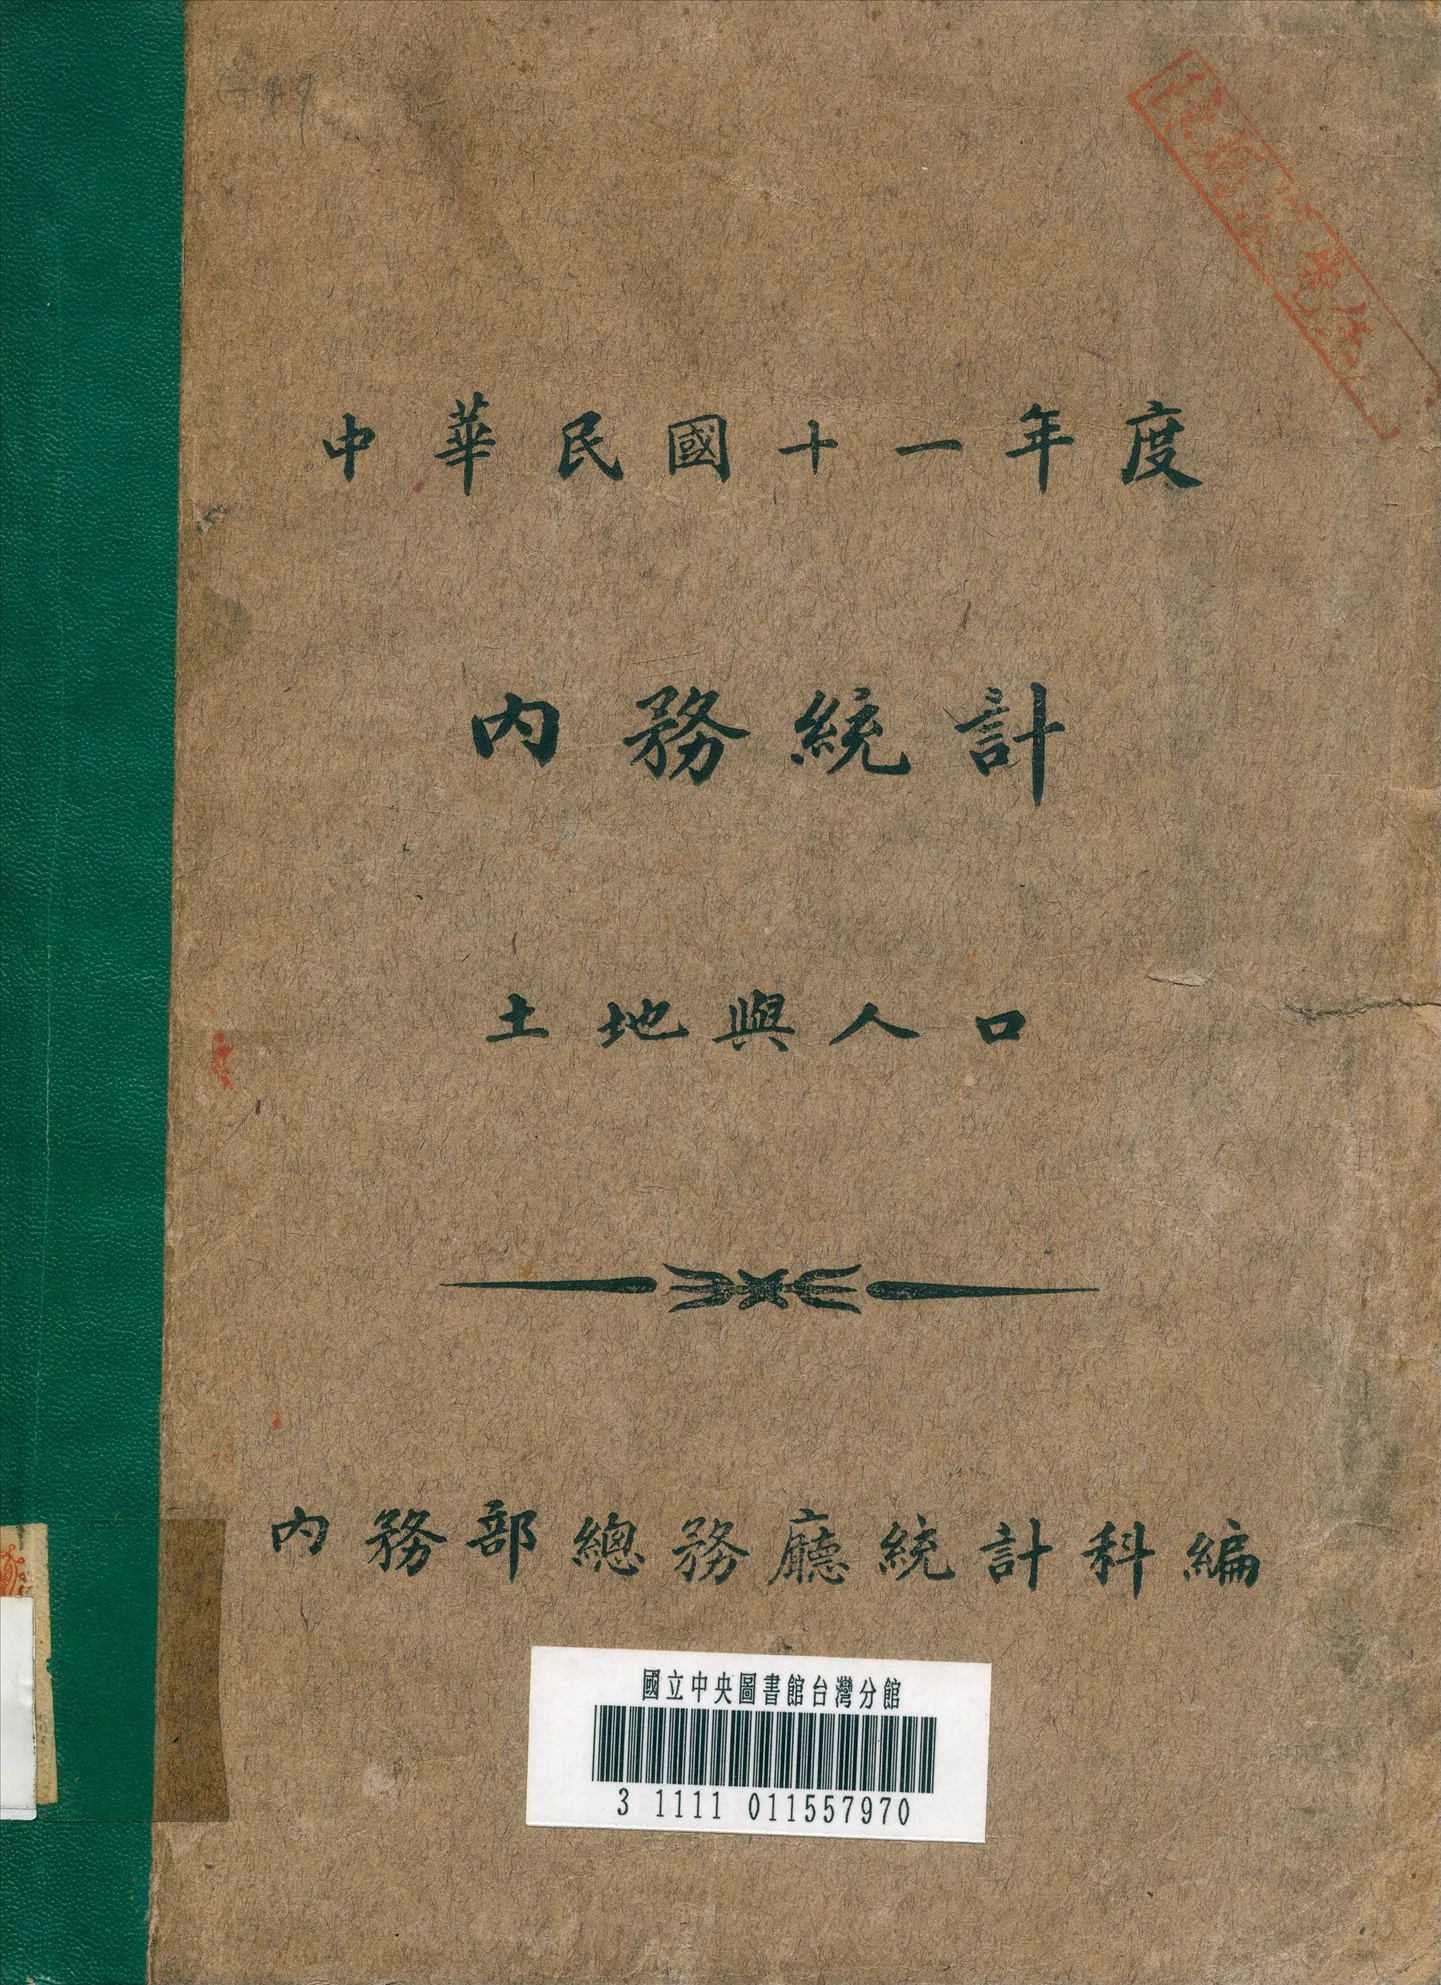 中華民國十一年度
內務統計
土地與人口
內務部總務廳統計科編
國立中央圖書館台灣分館
3 1111 011557970